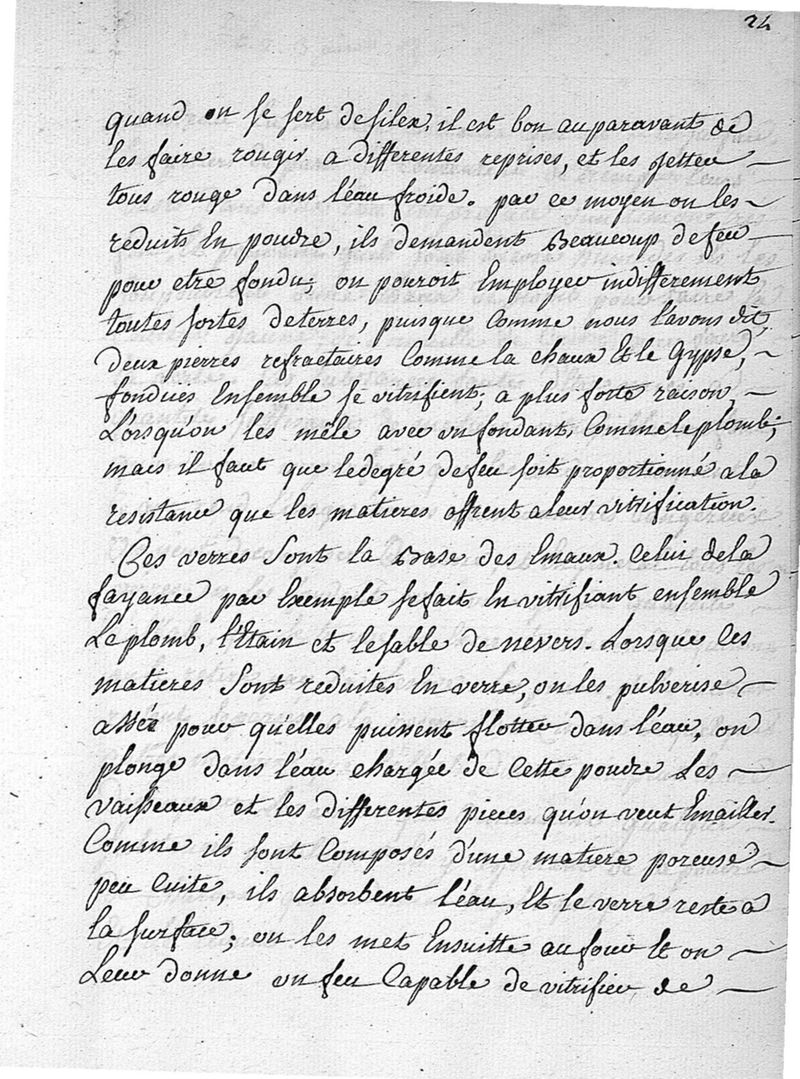 24
quand on se sert de silex, il est bon auparavant de
les faire rougir a differentes reprises, et les jetter
tous rouge dans l'eau froide. par ce moyen on les
reduits En poudre, ils demandent Beaucoup de feu
pour etre fondu; on pouroit Employer indifferement
toutes sortes de terres, puisque Comme nous l'avons dit,
deux pierres refractaires Comme la chaux Et le Gypse,
fondues Ensemble se vitrifient; a plus forte raison
Lorsqu'on les mêle avec un fondant, Comme le plomb;
mais il faut que le degré de feu soit proportionné a la
resistance que les matieres offrent a leur vitrification.
Ces verres Sont la Base des Emaux. Celui de la
fayance par Exemple se fait En vitrifiant ensemble
Le plomb, l'Etain et le sable de nevers. Lorsque Ces
matieres Sont reduites En verre, on les pulverise
assés pour qu'elles puissent flotter dans l'eau, on
plonge dans l'eau chargée de Cette poudre Les
vaisseaux et les differentes pieces qu'on veut Emailler.
Comme ils sont Composés d'une matiere poreuse
peu Cuite, ils absorbent l'eau, Et le verre reste a
la surface; on les met Ensuitte au four Et on
Leur donne un feu Capable de vitrifier de